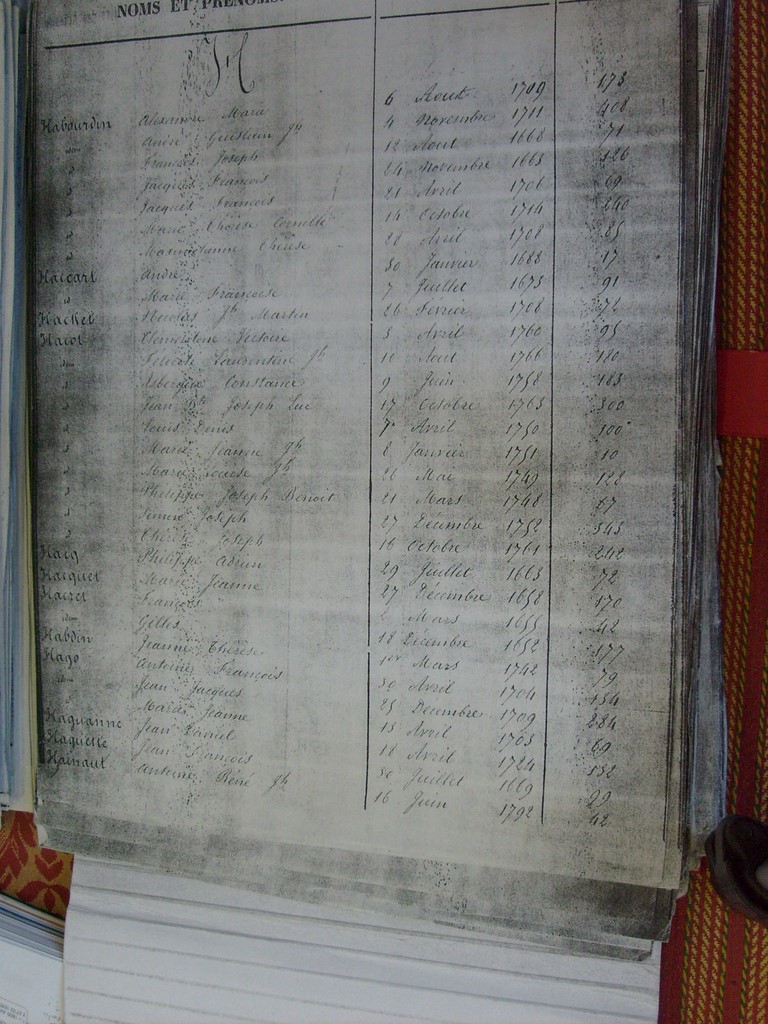 NOMS ET PRÉNOMS.
H
Habourdin Alexandre Marie 6 Aout 1709 173
idem André Guislain Jh 4 Novembre 1711 408
id François Joseph 12 Aout 1668 71
id Jacques François 24 Novembre 1663 126
id Jacques François 21 Avril 1706 69
id Marie Thérèse Corneille 14 Octobre 1714 240
id Marie Anne Thérèse 28 Avril 1708 85
Haccart André 30 Janvier 1688 17
id Marie Françoise 7 Juillet 1673 91
Hacket Nicolas Jh Martin 26 Février 1708 72
Hacot Clémentine Victoire 5 Avril 1760 95
idem Félicité Laurentine Jh 10 Aout 1766 180
id Isbergue Constance 9 Juin 1758 183
id Jean Bte Joseph Luc 17 Octobre 1763 300
id Louis Denis 7 Avril 1750 100
id Marie Jeanne Jh 8 Janvier 1751 10
id Marie Louise Jh 26 Mai 1749 128
id Philippe Joseph Benoit 21 Mars 1748 67
id Simon Joseph 27 Décembre 1752 343
id Thérèse Joseph 16 Octobre 1761 242
Hacq Philippe Adrien 29 Juillet 1663 72
Hacquet Marie Jeanne 27 Décembre 1658 170
Hacret François 2 Mars 1655 42
idem Gilles 18 Décembre 1652 177
Habdin Jeanne Thérèse 1er Mars 1742 79
Hago Antoine François 30 Avril 1704 134
idem Jean Jacques 25 Décembre 1709 284
id Marie Jeanne 13 Avril 1703 69
Haguanne Jean Daniel 18 Avril 1724 132
Haguette Jean François 30 Juillet 1669 29
Hainaut Antoine René Jh 16 Juin 1792 42